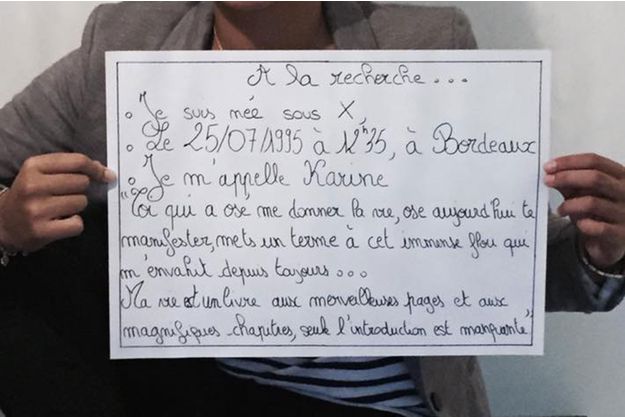 A la recherche...
• Je suis née sous X,
• Le 25/07/1995 à 12h35, à Bordeaux
• Je m'appelle Karine
"Toi qui a osé me donner la vie, ose aujourd'hui te
manifester, mets un terme à cet immense flou qui
m'envahit depuis toujours...
Ma vie est un livre aux merveilleuses pages et aux
magnifiques chapitres, seule l'introduction est manquante"